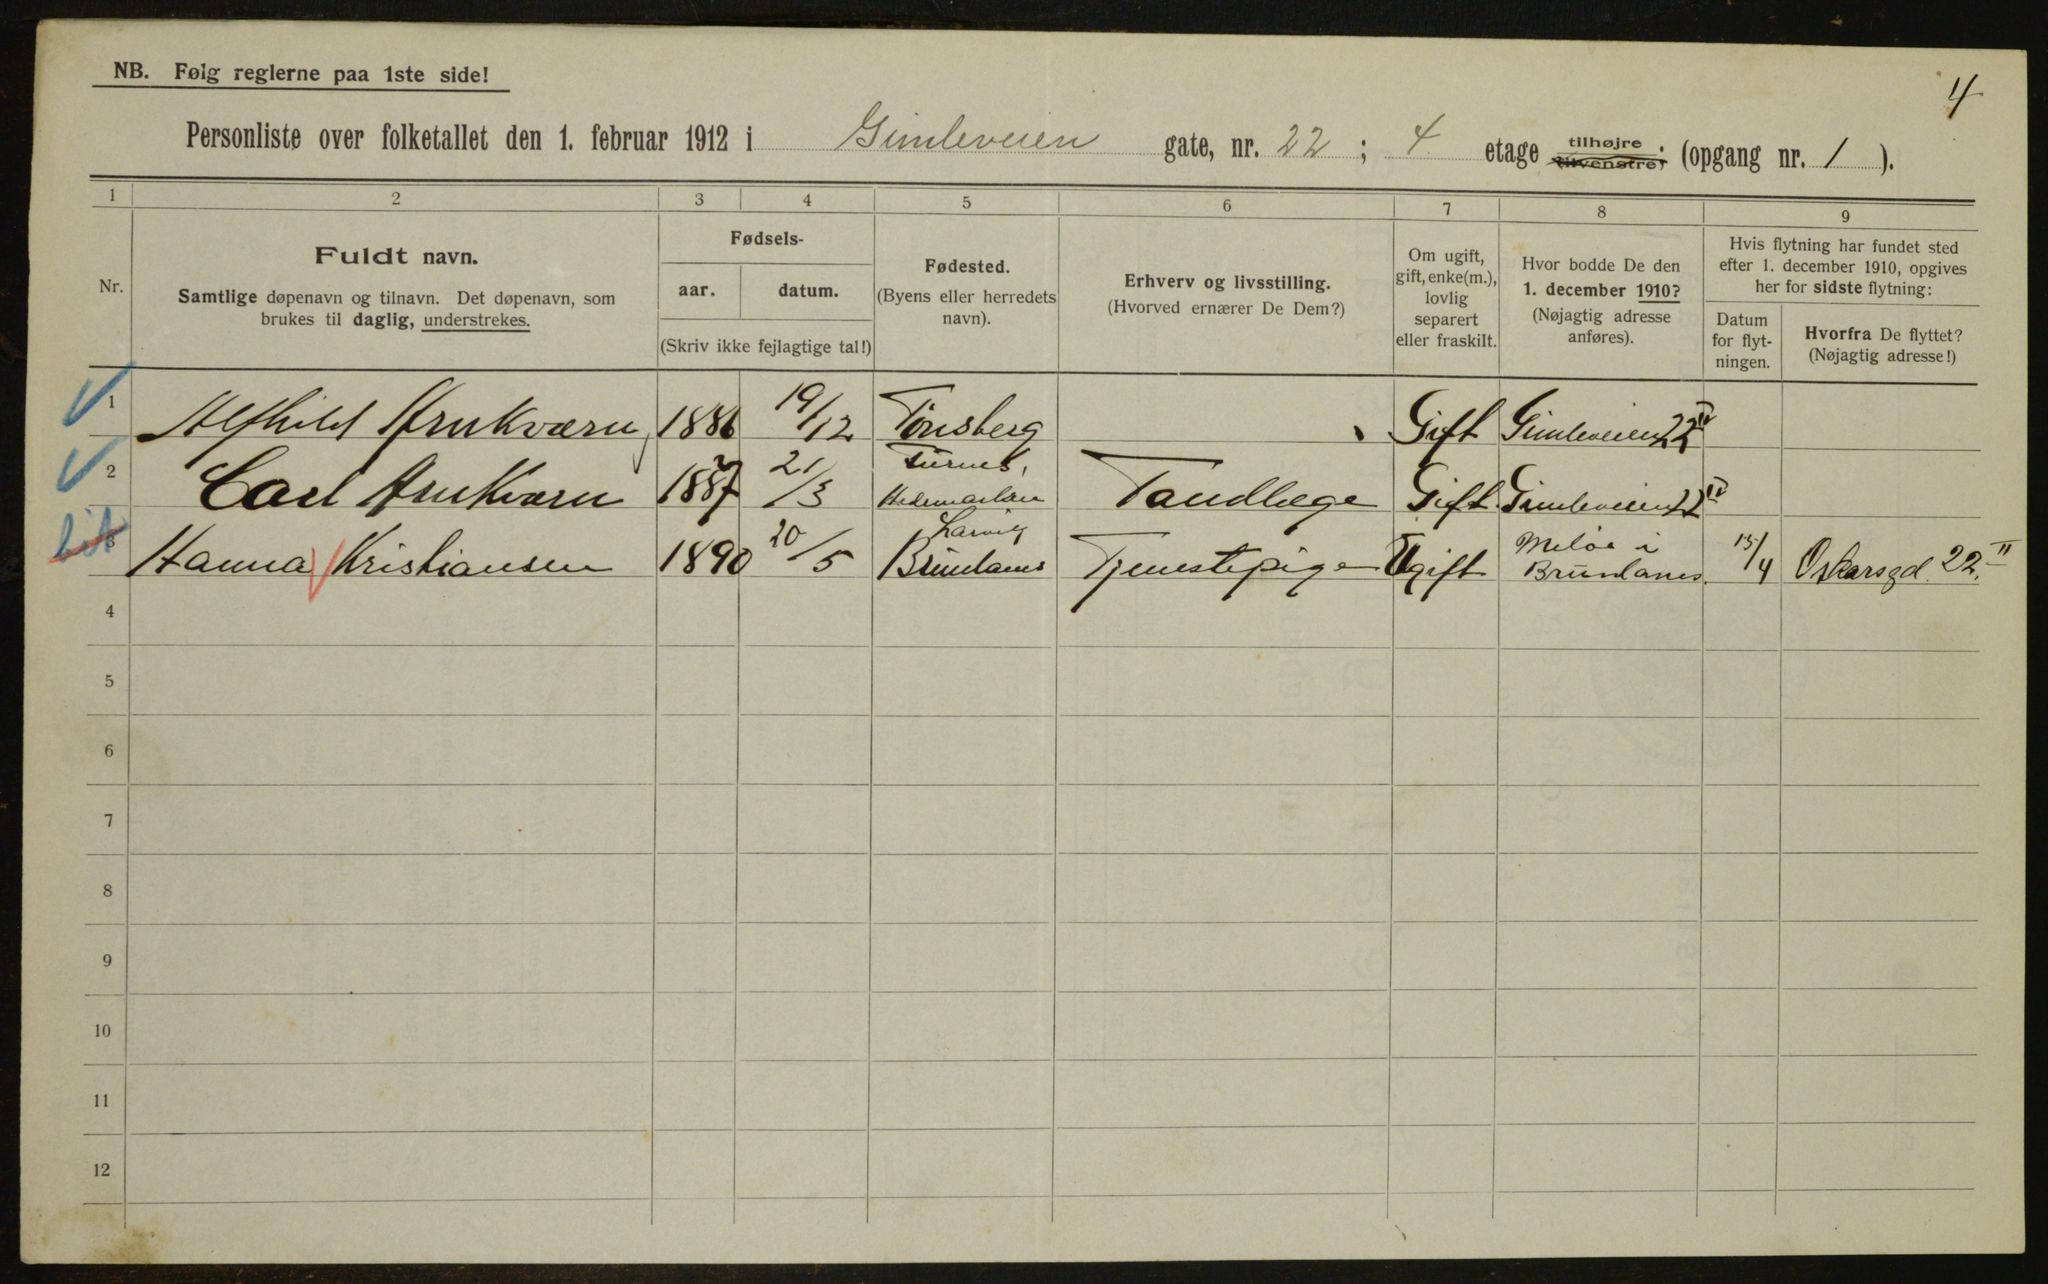 4
NB. Følg reglerne paa 1ste side!
Personliste over folketallet den 1. februar 1912 i Gimleveien gate, nr. 22 ; 4 etage tilhøjre tilvenstre; (opgang nr. 1 ).
1 2 3 4 5 6 7 8 9
Nr.
Fuldt navn.
Samtlige døpenavn og tilnavn. Det døpenavn, som
brukes til daglig, understrekes.
Fødsels-
aar. datum.
(Skriv ikke fejlagtige tal!)
Fødested.
(Byens eller herredets
navn).
Erhverv og livsstilling.
(Hvorved ernærer De Dem?)
Om ugift,
gift, enke(m.),
lovlig
separert
eller fraskilt.
Hvor bodde De den
1. december 1910?
(Nøjagtig adresse
anføres).
Hvis flytning har fundet sted
efter 1. december 1910, opgives
her for sidste flytning:
Datum
for flyt-
ningen.
Hvorfra De flyttet?
(Nøjagtig adresse!)
1 Alfhild Arnkværn 1886 19/12 Tønsberg Gift Gimleveien 22 IV
2 Carl Arnkværn 1887 21/3 Hedemarken Tandlæge Gift Gimleveien 22 IV
3 Hanna Kristiansen 1890 20/5 Larvig Brunlanes Tjenestepige Ugift i Brunlanes. 15/4 Oskarsgd. 22. II
4
5
6
7
8
9
10
11
12